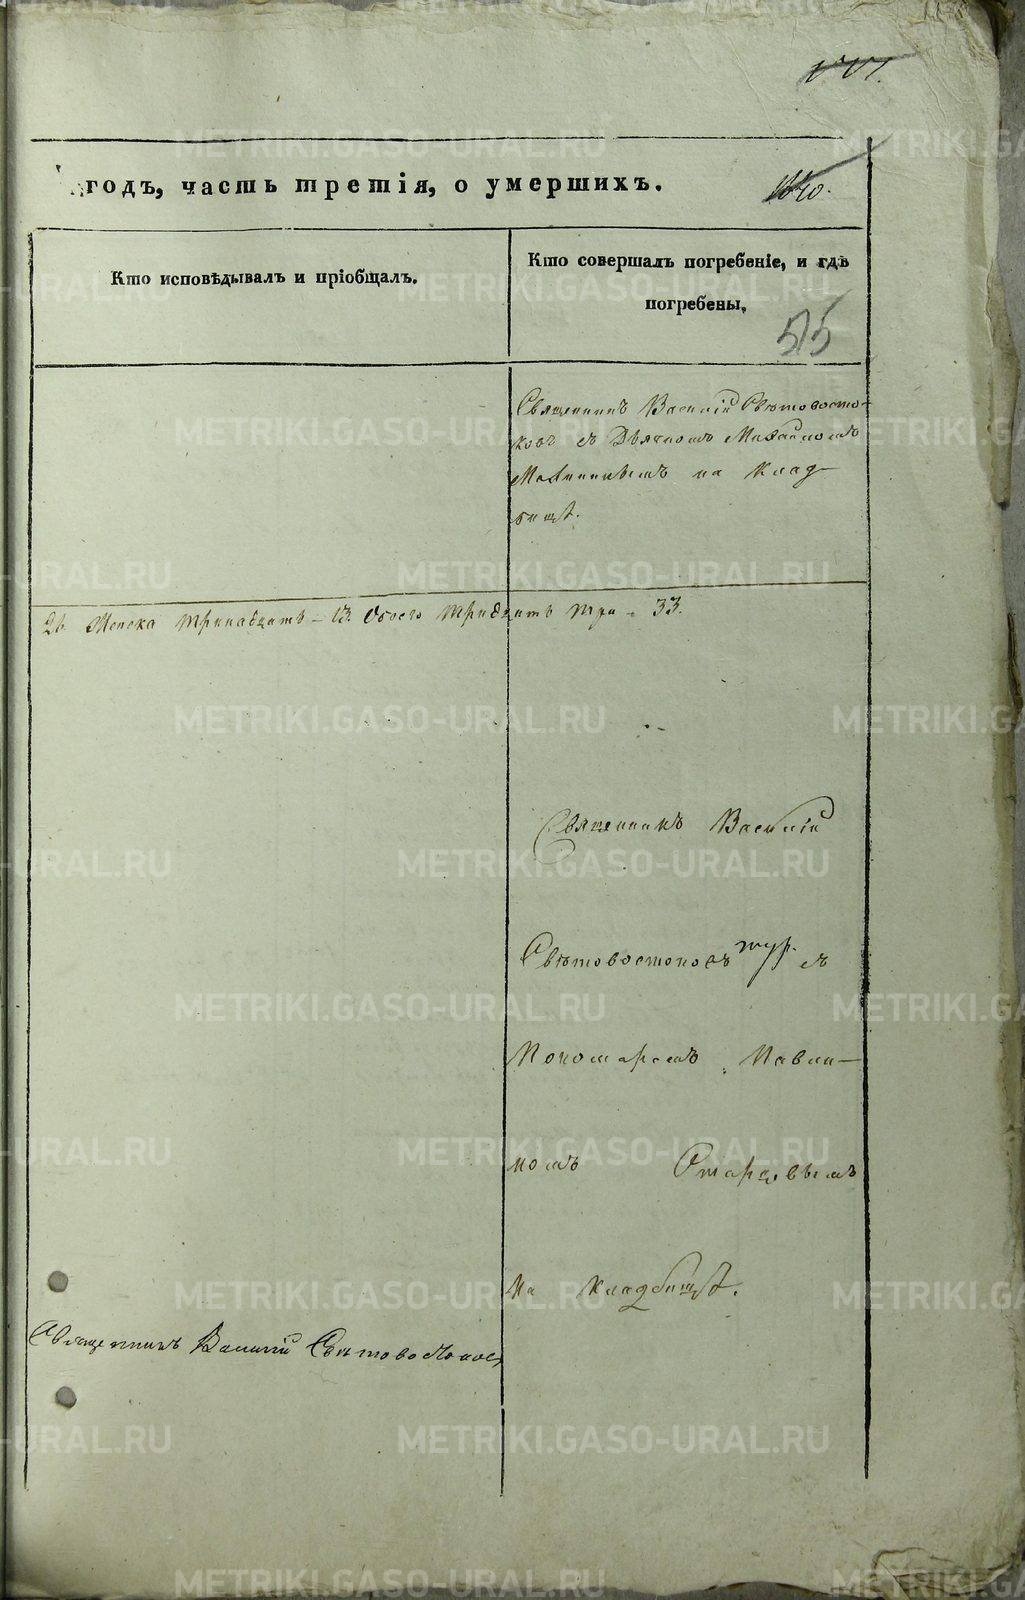 годъ, часть третія, о умершихъ.
Кто исповѣдывалъ и пріобщалъ.
Кто совершалъ погребеніе, и гдѣ
погребены,
515
Священникъ Василій Свѣтовосто-
ковъ съ Дьячкомъ Михаиломъ
на Клад-
бищѣ.
Женска тринадцать – 13. Обоего тридцать три – 33.
Священникъ Василій
Свѣтовостоковъ съ
Пономаремъ Павли-
номъ Старцовымъ
на кладбищѣ.
Священникъ Василій Свѣтовостоковъ
METRIKI.GASO-URAL.RU